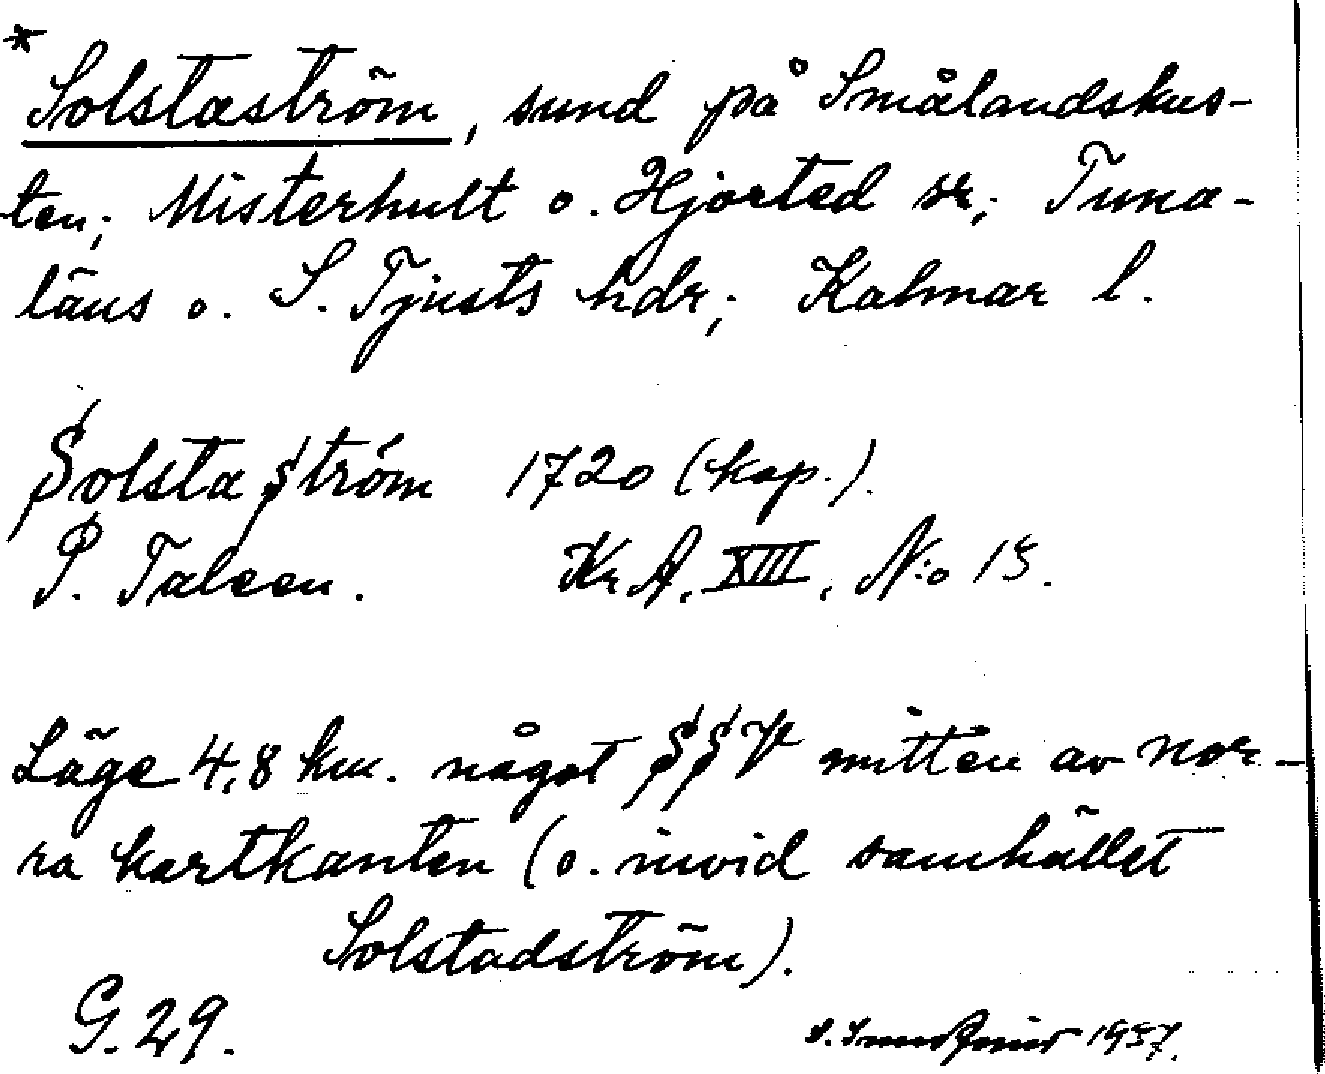 * Solstaström, sund på Smålandskus-
ten; Misterhult o. Hjorted sr; Tuna-
läns o. S. Tjusts hdr; Kalmar l.
Solsta Ström 1720 (kop.).
P. Taleen. KrA. XIII, N:o 15.
Läge 4,8 km. något SSV mitten av nor-
ra kartkanten (o. invid samhället
Solstadström).
G. 29.
1937.